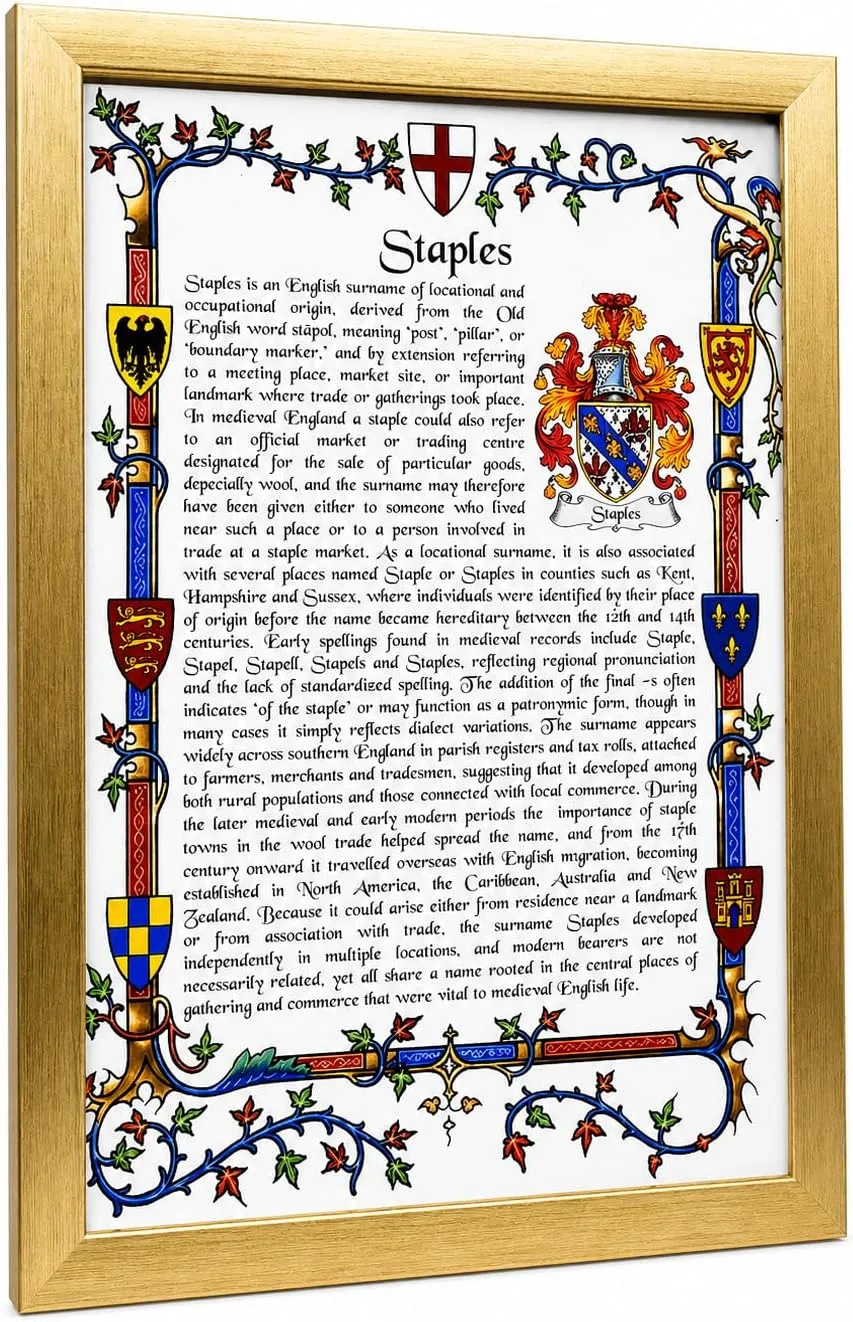 Staples
Staples is an English surname of locational and
occupational origin, derived from the Old
English word stāpol, meaning ‘post’, ‘pillar’, or
‘boundary marker,’ and by extension referring
to a meeting place, market site, or important
landmark where trade or gatherings took place.
In medieval England a staple could also refer
to an official market or trading centre
designated for the sale of particular goods,
depecially wool, and the surname may therefore
have been given either to someone who lived
near such a place or to a person involved in
Staples
trade at a staple market. As a locational surname, it is also associated
with several places named Staple or Staples in counties such as Kent,
Hampshire and Sussex, where individuals were identified by their place
of origin before the name became hereditary between the 12th and 14th
centuries. Early spellings found in medieval records include Staple,
Stapel, Stapell, Stapels and Staples, reflecting regional pronunciation
and the lack of standardized spelling. The addition of the final -s often
indicates ‘of the staple’ or may function as a patronymic form, though in
many cases it simply reflects dialect variations. The surname appears
widely across southern England in parish registers and tax rolls, attached
to farmers, merchants and tradesmen, suggesting that it developed among
both rural populations and those connected with local commerce. During
the later medieval and early modern periods the importance of staple
towns in the wool trade helped spread the name, and from the 17th
century onward it travelled overseas with English migration, becoming
established in North America, the Caribbean, Australia and New
Zealand. Because it could arise either from residence near a landmark
or from association with trade, the surname Staples developed
independently in multiple locations, and modern bearers are not
necessarily related, yet all share a name rooted in the central places of
gathering and commerce that were vital to medieval English life.